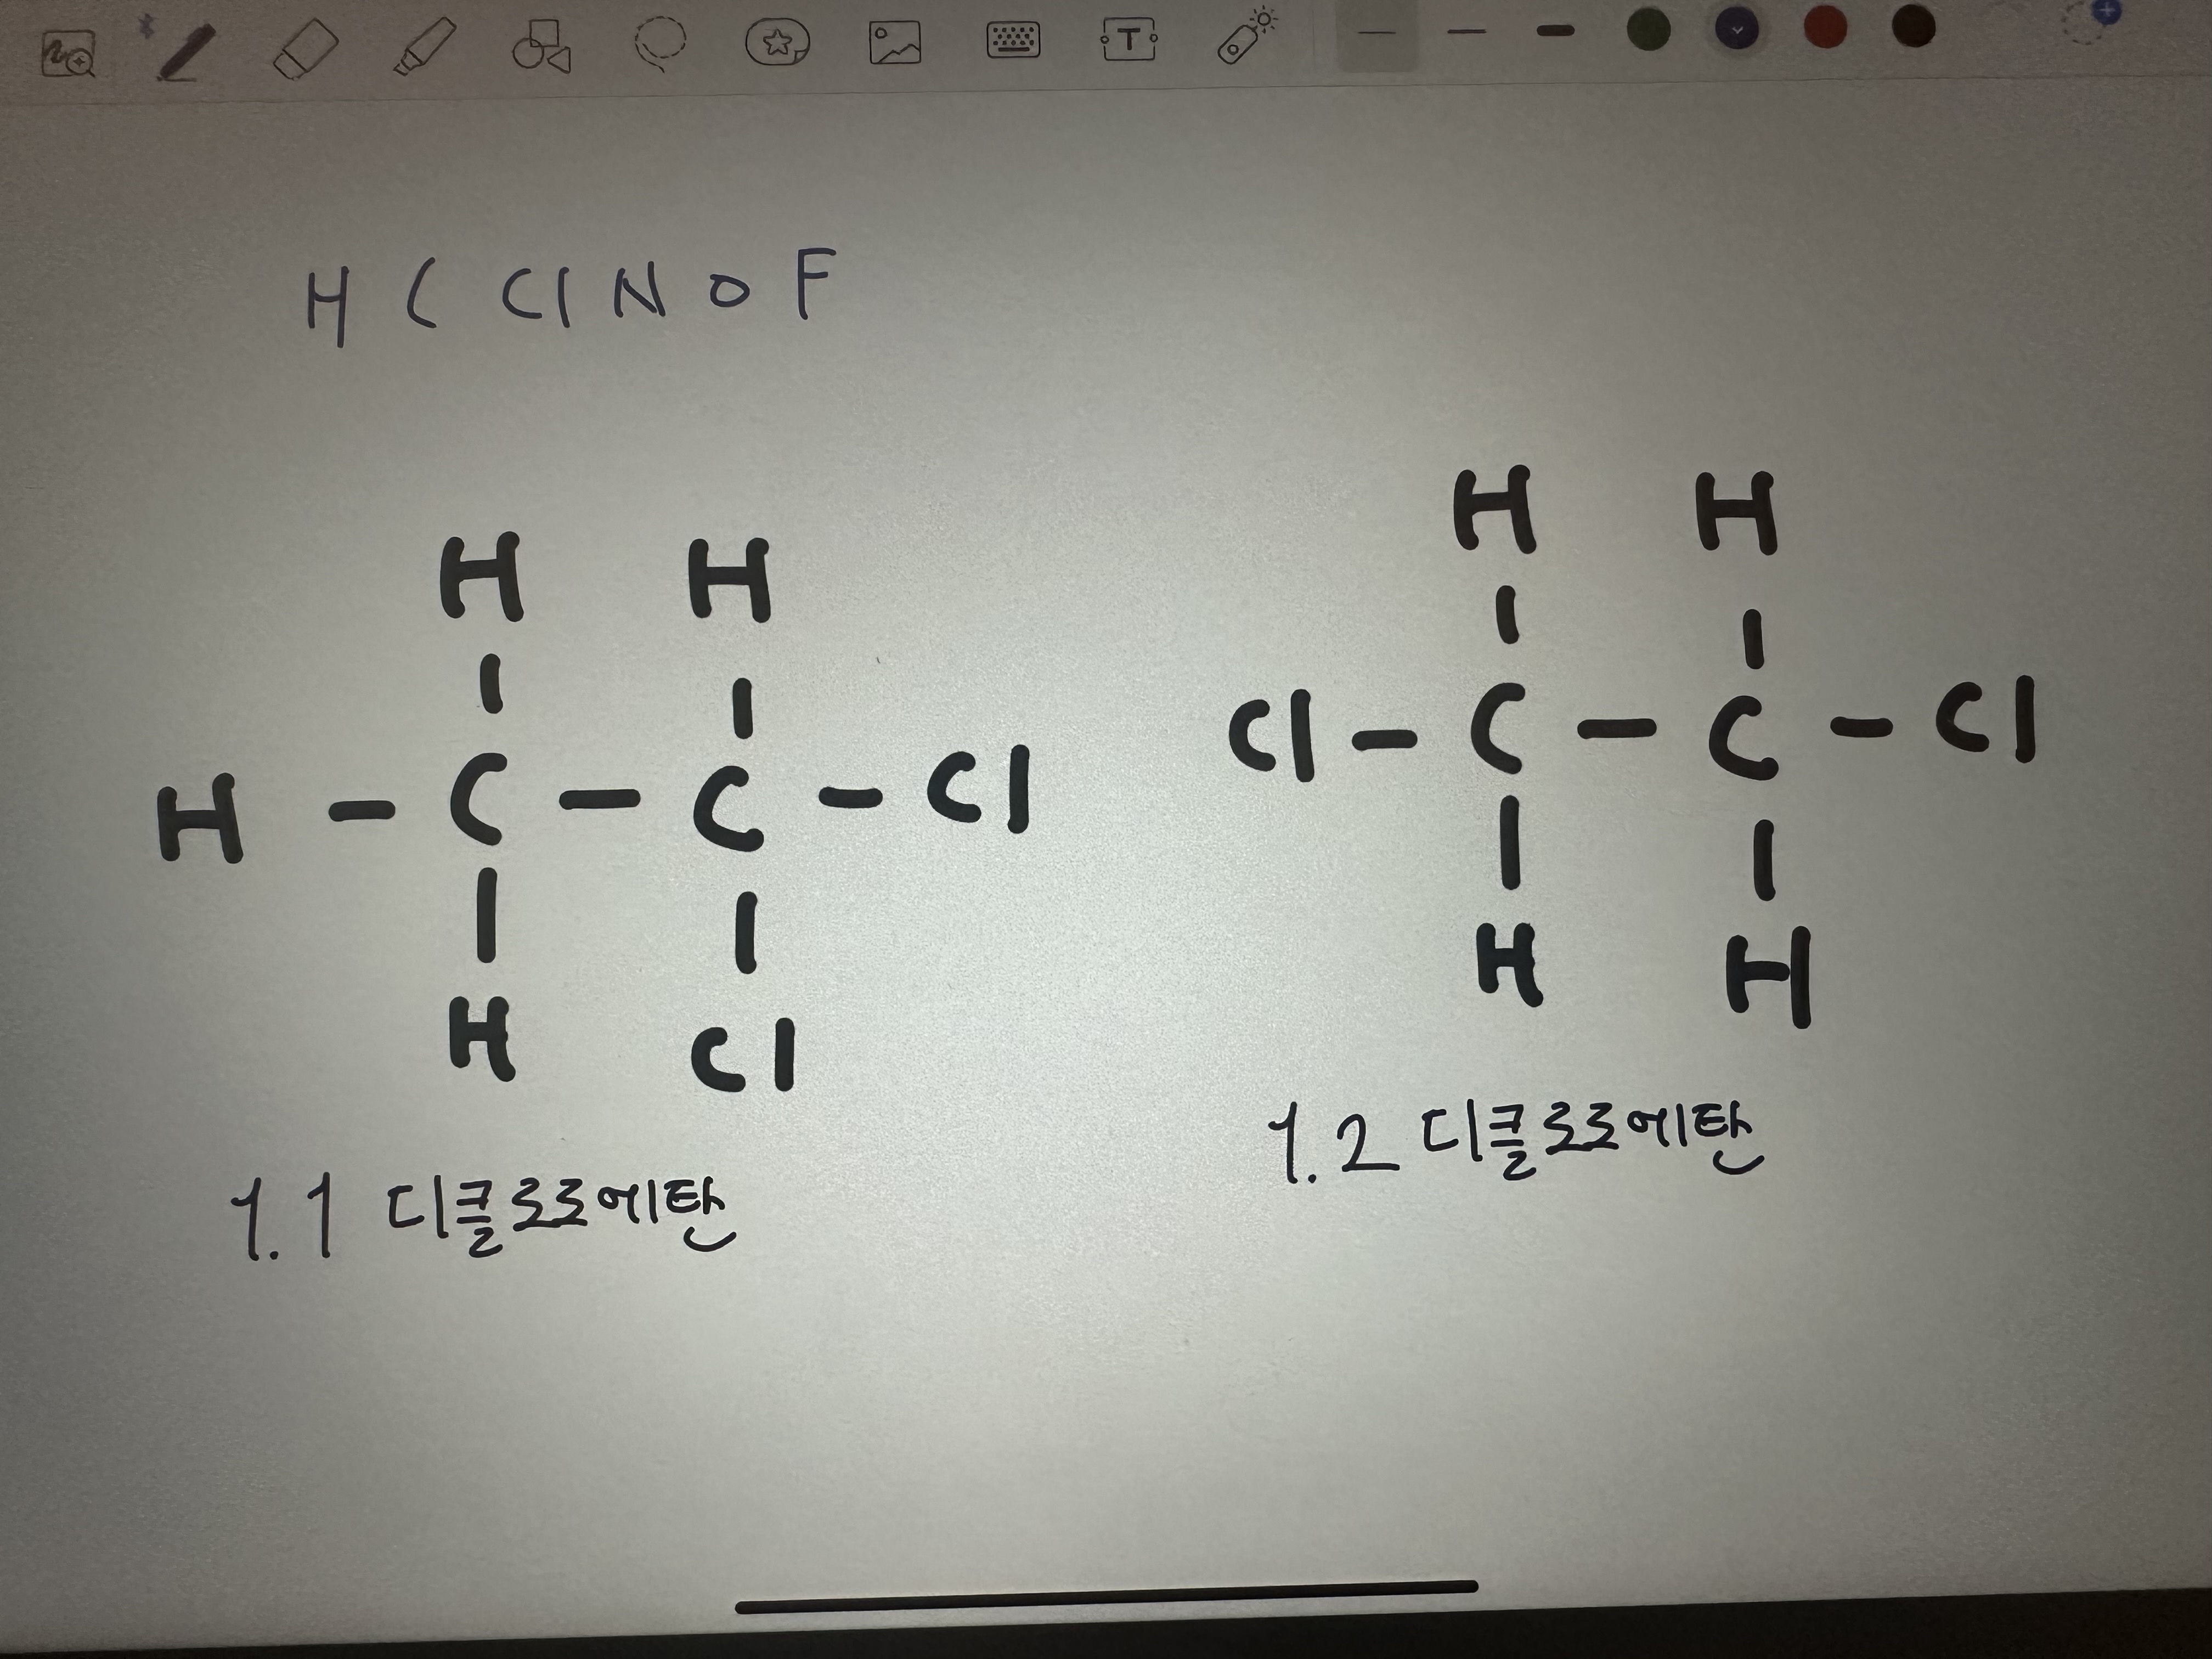 H C Cl N O F
H H
H - C - C - Cl
H Cl
1.1 디클로로에탄
H H
Cl - C - C - Cl
H H
1.2 디클로로에탄